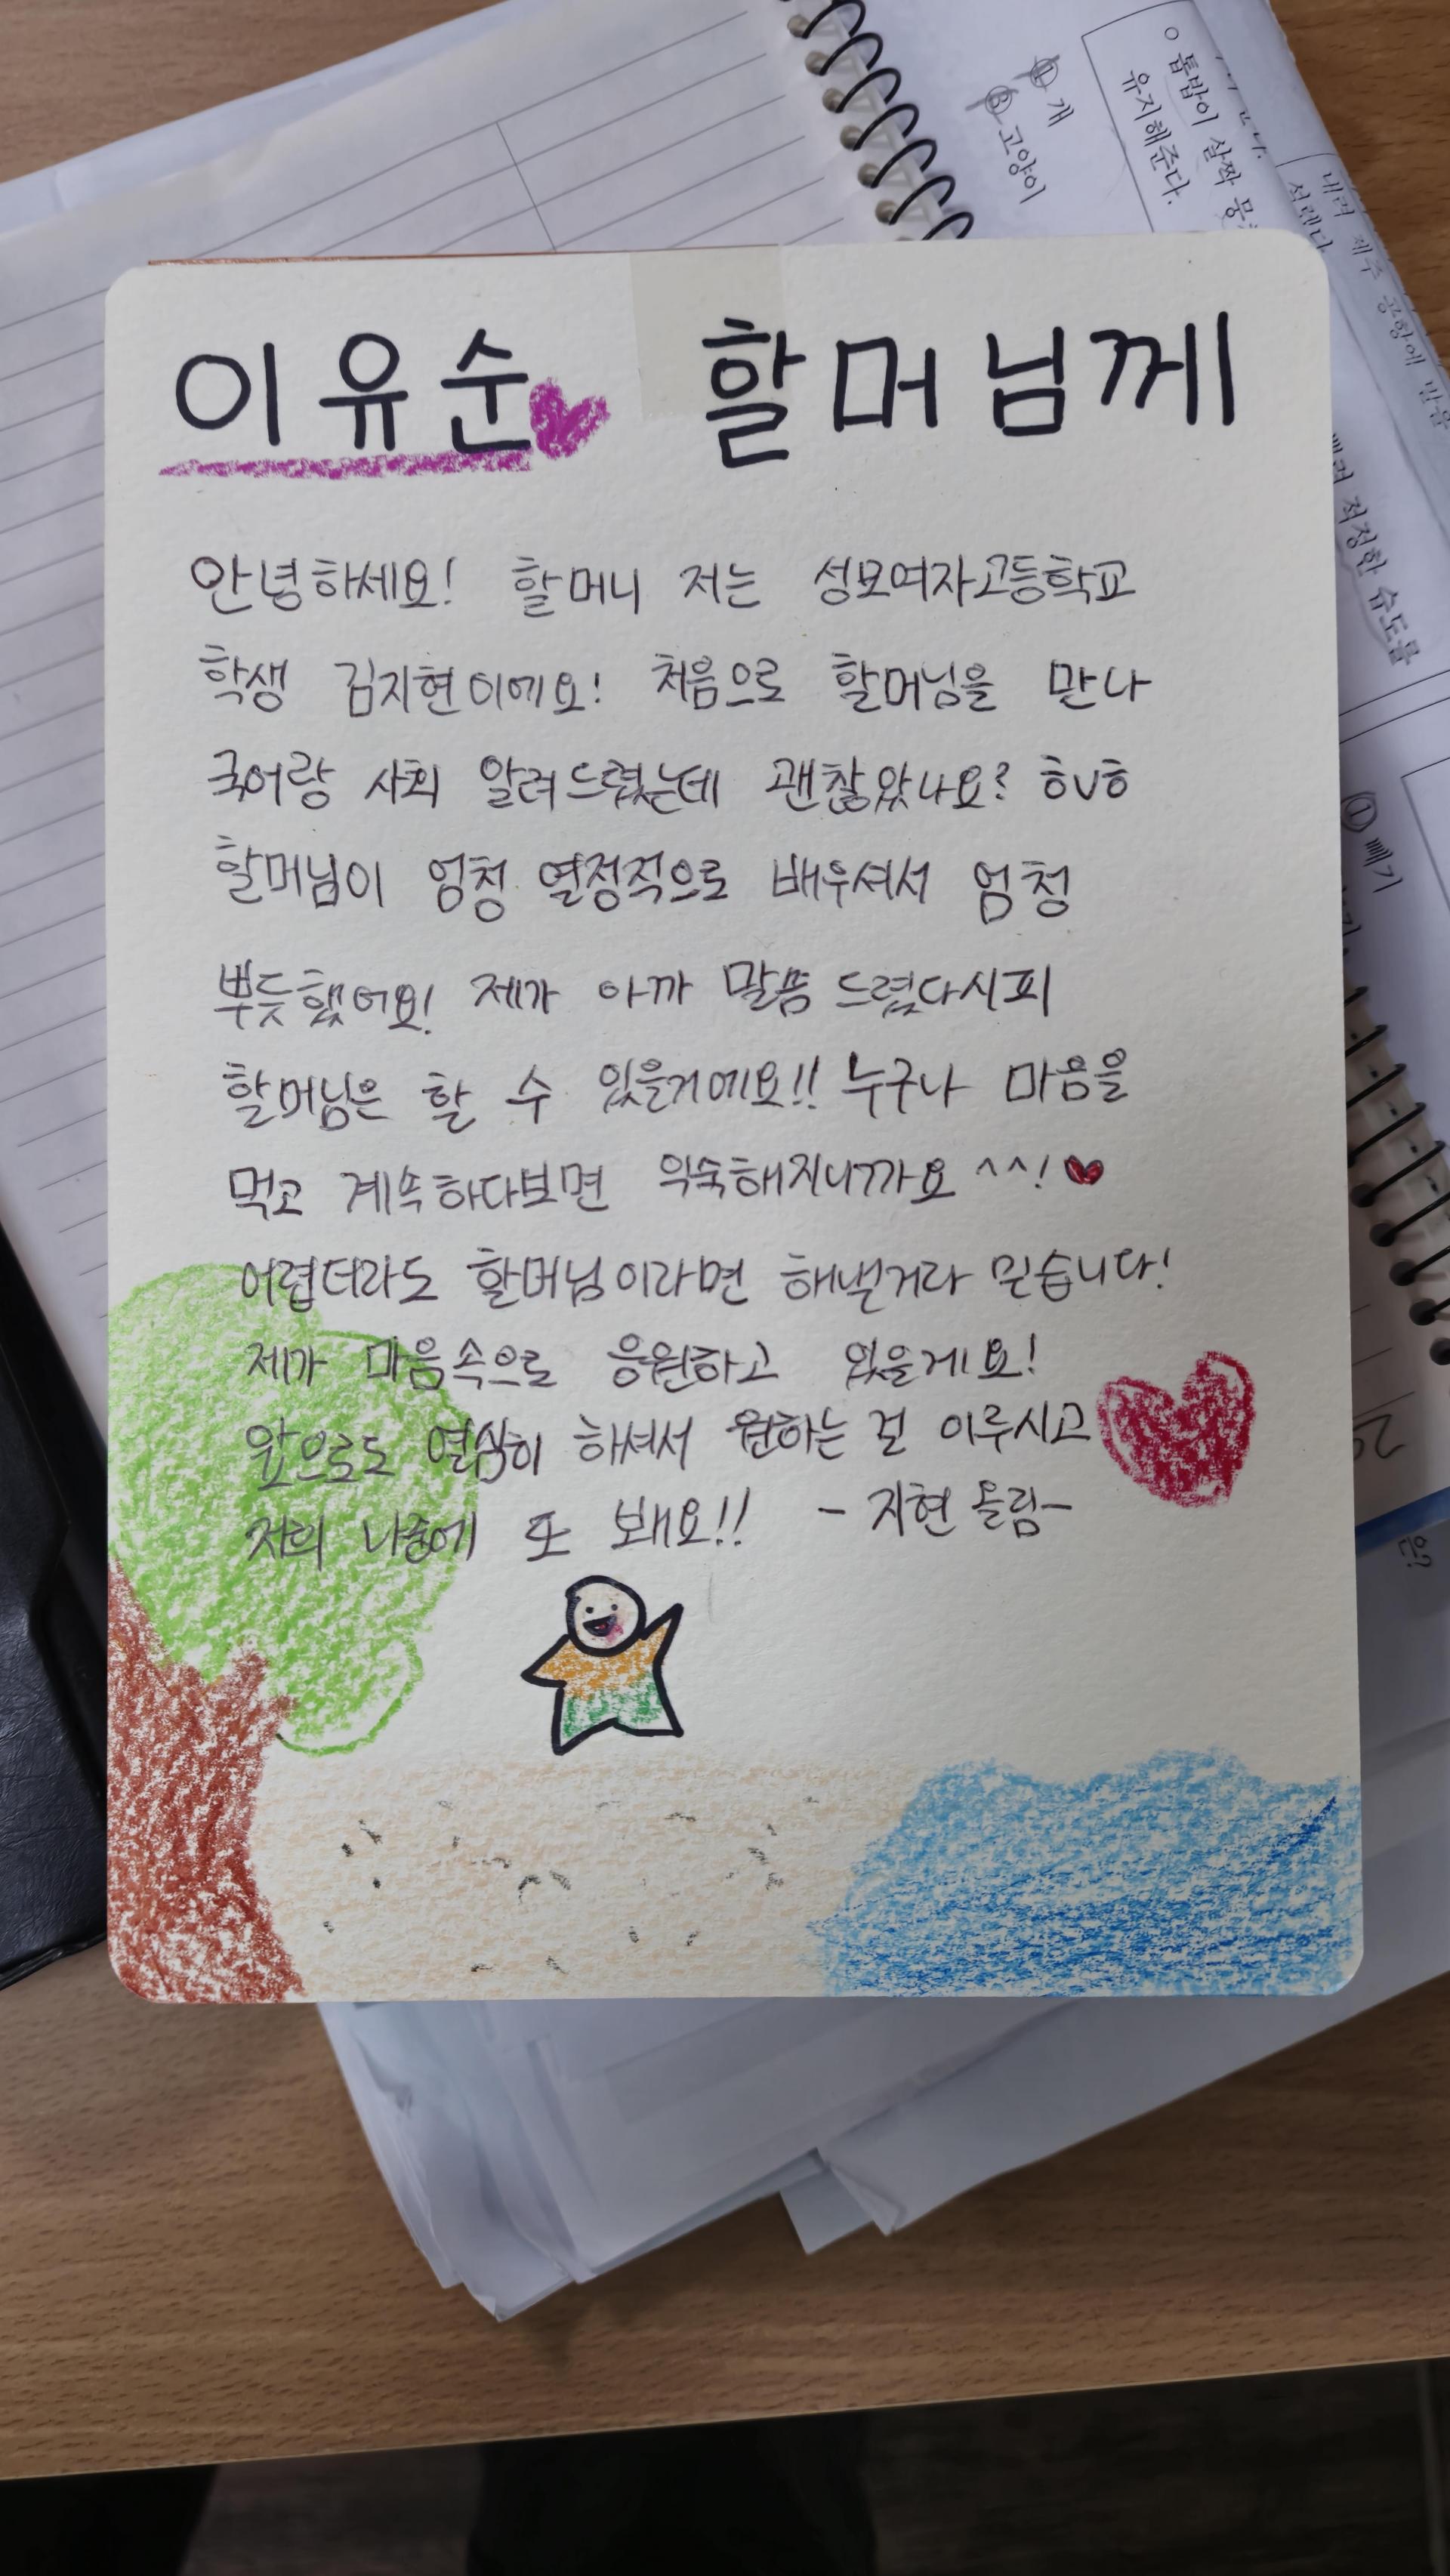 이유순 할머님께
안녕하세요! 할머니 저는 성모여자고등학교
학생 김지현이에요! 처음으로 할머님을 만나
국어랑 사회 알려드렸는데 괜찮았나요? ㅎvㅎ
할머님이 엄청 열정적으로 배우셔서 엄청
뿌듯했어요! 제가 아까 말씀 드렸다시피
할머님은 할 수 있을거에요!! 누구나 마음을
먹고 계속하다보면 익숙해지니까요 ^^!
어렵더라도 할머님이라면 해낼거라 믿습니다!
제가 마음속으로 응원하고 있을게요!
앞으로도 열심히 하셔서 원하는 걸 이루시고
저희 나중에 또 봬요!! - 지현 올림-
① 개
③ 고양이
○ 톱밥이 살짝
유지해준다.
내려 제주 공항에
적정한 습도를
① 빼기